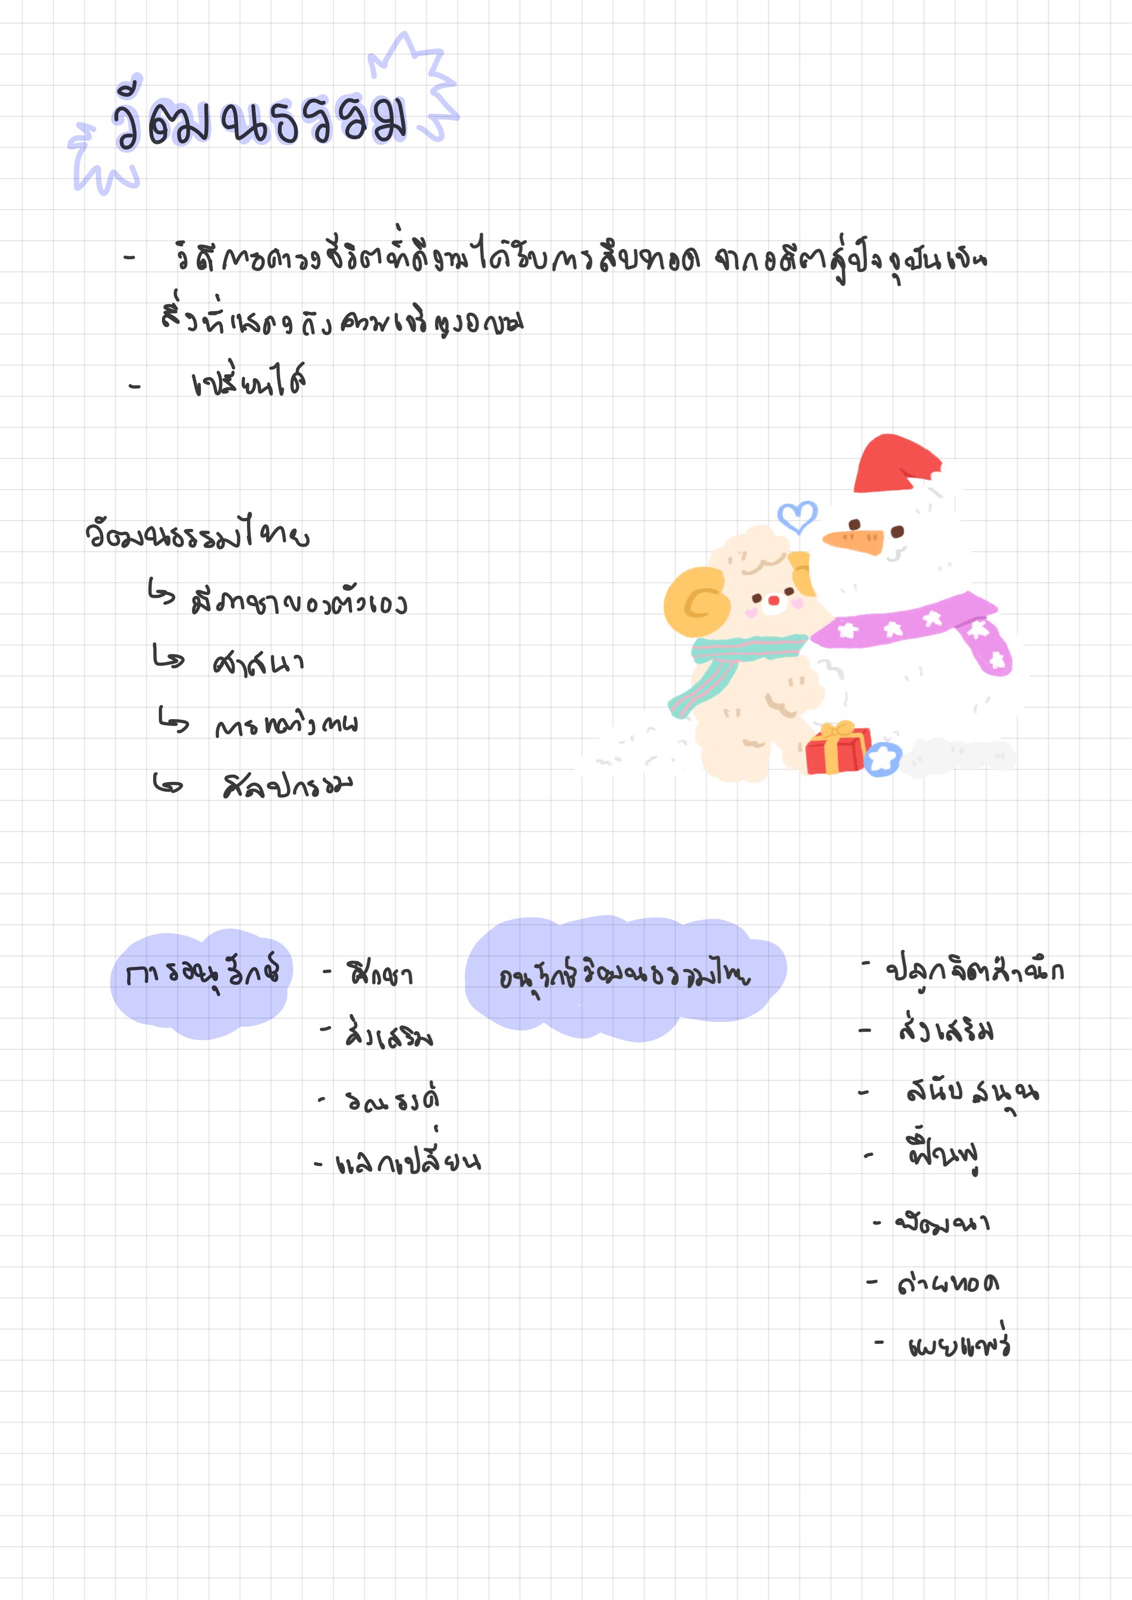 วัฒนธรรม
- วิถีการดำรงชีวิตที่ดีงามได้รับการสืบทอด จากอดีตสู่ปัจจุบันเป็น
สิ่งที่แสดงถึงความเจริญงอกงาม
- เปลี่ยนได้
วัฒนธรรมไทย
↳ มีภาษาของตัวเอง
↳ ศาสนา
↳ การแต่งกาย
↳ ศิลปกรรม
การอนุรักษ์
- ศึกษา
- ส่งเสริม
- รณรงค์
- แลกเปลี่ยน
อนุรักษ์วัฒนธรรมไทย
- ปลูกจิตสำนึก
- ส่งเสริม
- สนับสนุน
- ฟื้นฟู
- พัฒนา
- ถ่ายทอด
- เผยแพร่